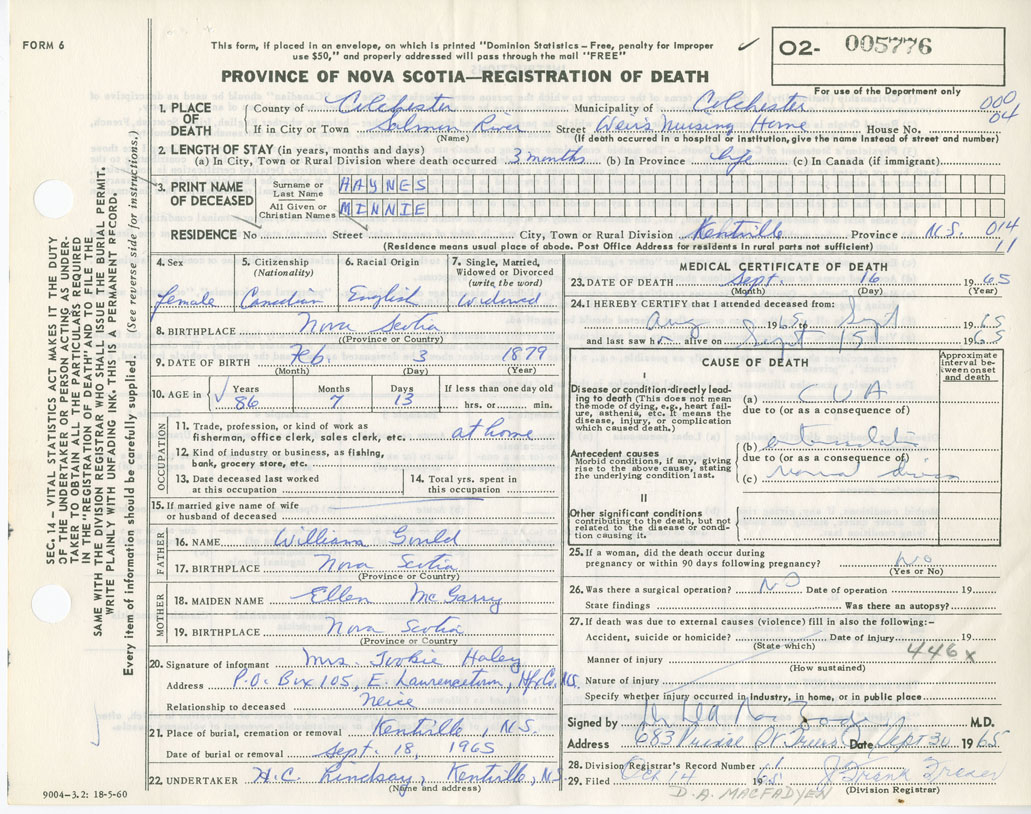 FORM 6
This form, if placed in an envelope, on which is printed "Dominion Statistics – Free, penalty for improper
use $50," and properly addressed will pass through the mail "FREE"
02- 005776
PROVINCE OF NOVA SCOTIA—REGISTRATION OF DEATH
For use of the Department only
1. PLACE OF DEATH County of Colchester Municipality of Colchester 000
If in City or Town Salmon River Street Weir's Nursing Home House No. 04
(Name) (If death occurred in a hospital or institution, give the name instead of street and number)
2. LENGTH OF STAY (in years, months and days)
(a) In City, Town or Rural Division where death occurred 3 months (b) In Province Life (c) In Canada (if immigrant)
3. PRINT NAME OF DECEASED Surname or Last Name HAYNES
All Given or Christian Names MINNIE
RESIDENCE No Street City, Town or Rural Division Kentville Province N.S. 014
(Residence means usual place of abode. Post Office Address for residents in rural parts not sufficient) 11
SEC. 14 – VITAL STATISTICS ACT MAKES IT THE DUTY
OF THE UNDERTAKER OR PERSON ACTING AS UNDER-
TAKER TO OBTAIN ALL THE PARTICULARS REQUIRED
IN THE "REGISTRATION OF DEATH" AND TO FILE THE
SAME WITH THE DIVISION REGISTRAR WHO SHALL ISSUE THE BURIAL PERMIT.
WRITE PLAINLY WITH UNFADING INK. THIS IS A PERMANENT RECORD.
Every item of information should be carefully supplied. (See reverse side for instructions.)
4. Sex 5. Citizenship (Nationality) 6. Racial Origin 7. Single, Married, Widowed or Divorced (write the word)
Female Canadian English Widowed
8. BIRTHPLACE Nova Scotia
(Province or Country)
9. DATE OF BIRTH Feb 3 1879
(Month) (Day) (Year)
10. AGE in Years Months Days If less than one day old
86 7 13 hrs. or min.
OCCUPATION
11. Trade, profession, or kind of work as
fisherman, office clerk, sales clerk, etc. at home
12. Kind of industry or business, as fishing,
bank, grocery store, etc.
13. Date deceased last worked
at this occupation
14. Total yrs. spent in
this occupation
15. If married give name of wife
or husband of deceased
FATHER
16. NAME William Gould
17. BIRTHPLACE Nova Scotia
(Province or Country)
MOTHER
18. MAIDEN NAME Ellen McGarry
19. BIRTHPLACE Nova Scotia
(Province or Country)
20. Signature of informant Mrs. Tookie Haley
Address P.O. Box 105, E. Lawrencetown, Hfx Co. N.S.
Relationship to deceased Neice
21. Place of burial, cremation or removal Kentville, N.S.
Date of burial or removal Sept. 18, 1965
22. UNDERTAKER H.C. Lindsay, Kentville, N.S.
(Name and address)
9004-3.2: 18-5-60
MEDICAL CERTIFICATE OF DEATH
23. DATE OF DEATH Sept. 16 1965
(Month) (Day) (Year)
24. I HEREBY CERTIFY that I attended deceased from:
Aug 1965 to Sept 1965
and last saw h alive on Sept 15 1965
CAUSE OF DEATH
Approximate interval between onset and death
I
Disease or condition directly leading to death (This does not mean the mode of dying, e.g., heart failure, asthenia, etc. It means the disease, injury, or complication which caused death.)
(a) CVA
due to (or as a consequence of)
Antecedent causes
Morbid conditions, if any, giving rise to the above cause, stating the underlying condition last.
(b)
due to (or as a consequence of)
(c) renal
II
Other significant conditions
contributing to the death, but not related to the disease or condition causing it.
25. If a woman, did the death occur during
pregnancy or within 90 days following pregnancy? No
(Yes or No)
26. Was there a surgical operation? NO Date of operation 19
State findings Was there an autopsy?
27. If death was due to external causes (violence) fill in also the following:–
Accident, suicide or homicide? Date of injury 19
(State which)
Manner of injury 446x
(How sustained)
Nature of injury
Specify whether injury occurred in industry, in home, or in public place
Signed by M.D.
Address 683 Prince St Truro Date Sept 30 1965
28. Division Registrar's Record Number
29. Filed Oct 14 1965
(Division Registrar)
D. A. MACFADYEN